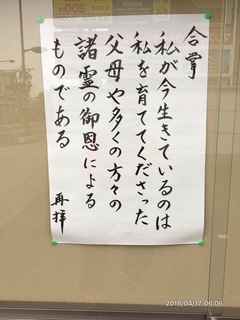 合掌
私が今生きているのは
私を育ててくださった
父母や多くの方々の
諸霊の御恩による
ものである
再拝
2018/04/17 06:06